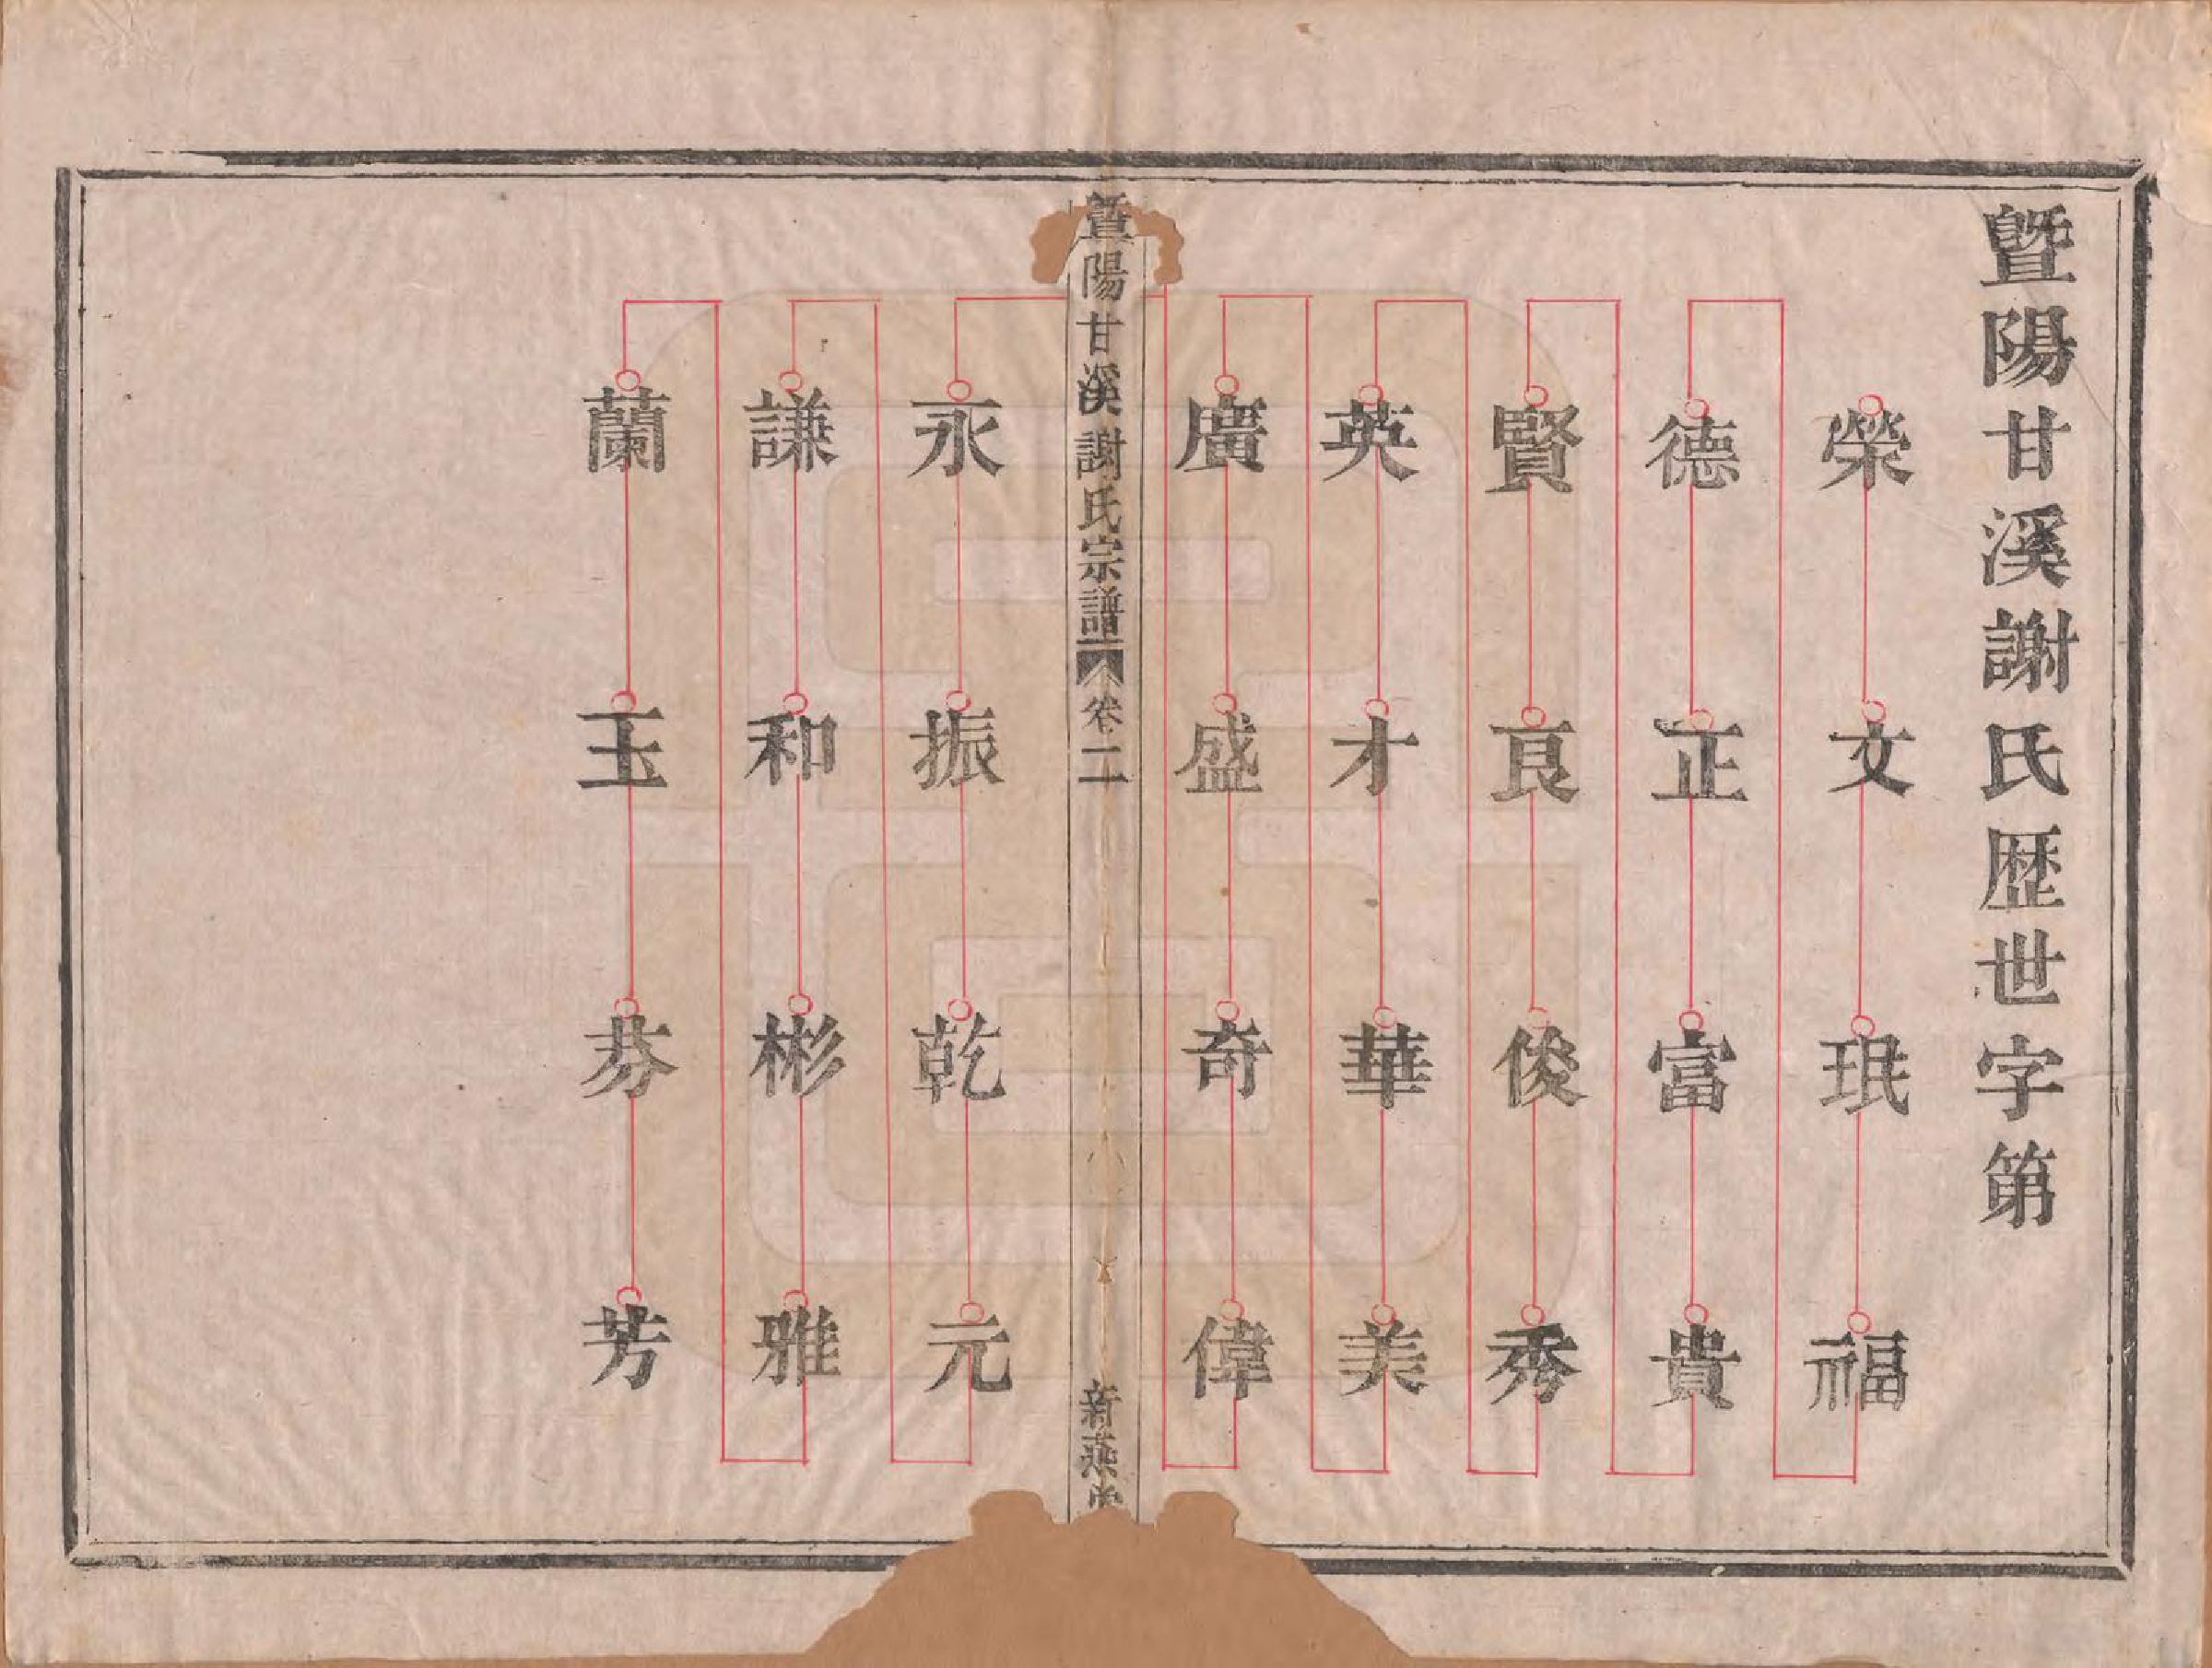 暨陽甘溪謝氏歴世字第
榮文珉福
德正富貴
賢良俊秀
英才華美
廣盛奇偉
暨陽甘溪謝氏宗譜 卷二 新燕堂
永振乾元
謙和彬雅
蘭玉芬芳